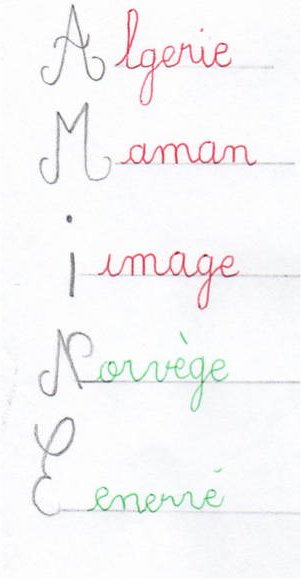 Algerie
Maman
i image
Norvège
E enervé